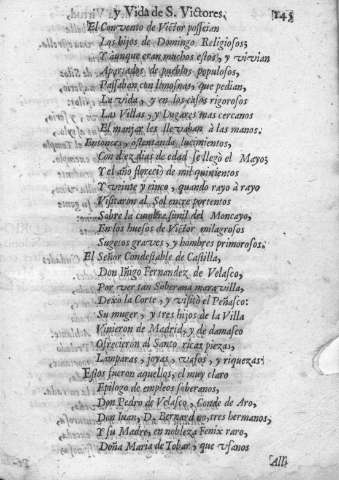 y Vida de S. Victores. 145
El Convento de Victor posseian
Los hijos de Domingo Religiosos;
Y aunque eran muchos estos, y vivian
Apartados de pueblos populosos,
Passaban con limosnas, que pedian,
La vida, y en los casos rigorosos
Las Villas, y Lugares mas cercanos
El manjar les llevaban à las manos.
Entonces, ostentando lucimientos,
Con diez dias de edad se llegò el Mayo;
Y el año floreciò de mil quinientos
Y veinte y cinco, quando rayo à rayo
Visitaron al Sol entre portentos
Sobre la cumbre simil del Moncayo,
En los huesos de Victor milagrosos
Sugetos graves, y hombres primorosos.
El Señor Condestable de Castilla,
Don Iñigo Fernandez de Velasco,
Por ver tan Soberana maravilla,
Dexò la Corte, y visitò el Peñasco:
Su muger, y tres hijos de la Villa
Vinieron de Madrid, y de damasco
Ofrecieron al Santo ricas piezas,
Lamparas, joyas, vasos, y riquezas.
Estos fueron aquellos, el muy claro
Epilogo de empleos soberanos,
Don Pedro de Velasco, Conde de Aro,
Don Iuan, D. Bernardino, tres hermanos,
Y su Madre, en nobleza Fenix raro,
Doña Maria de Tobar, que vfanos
Alli